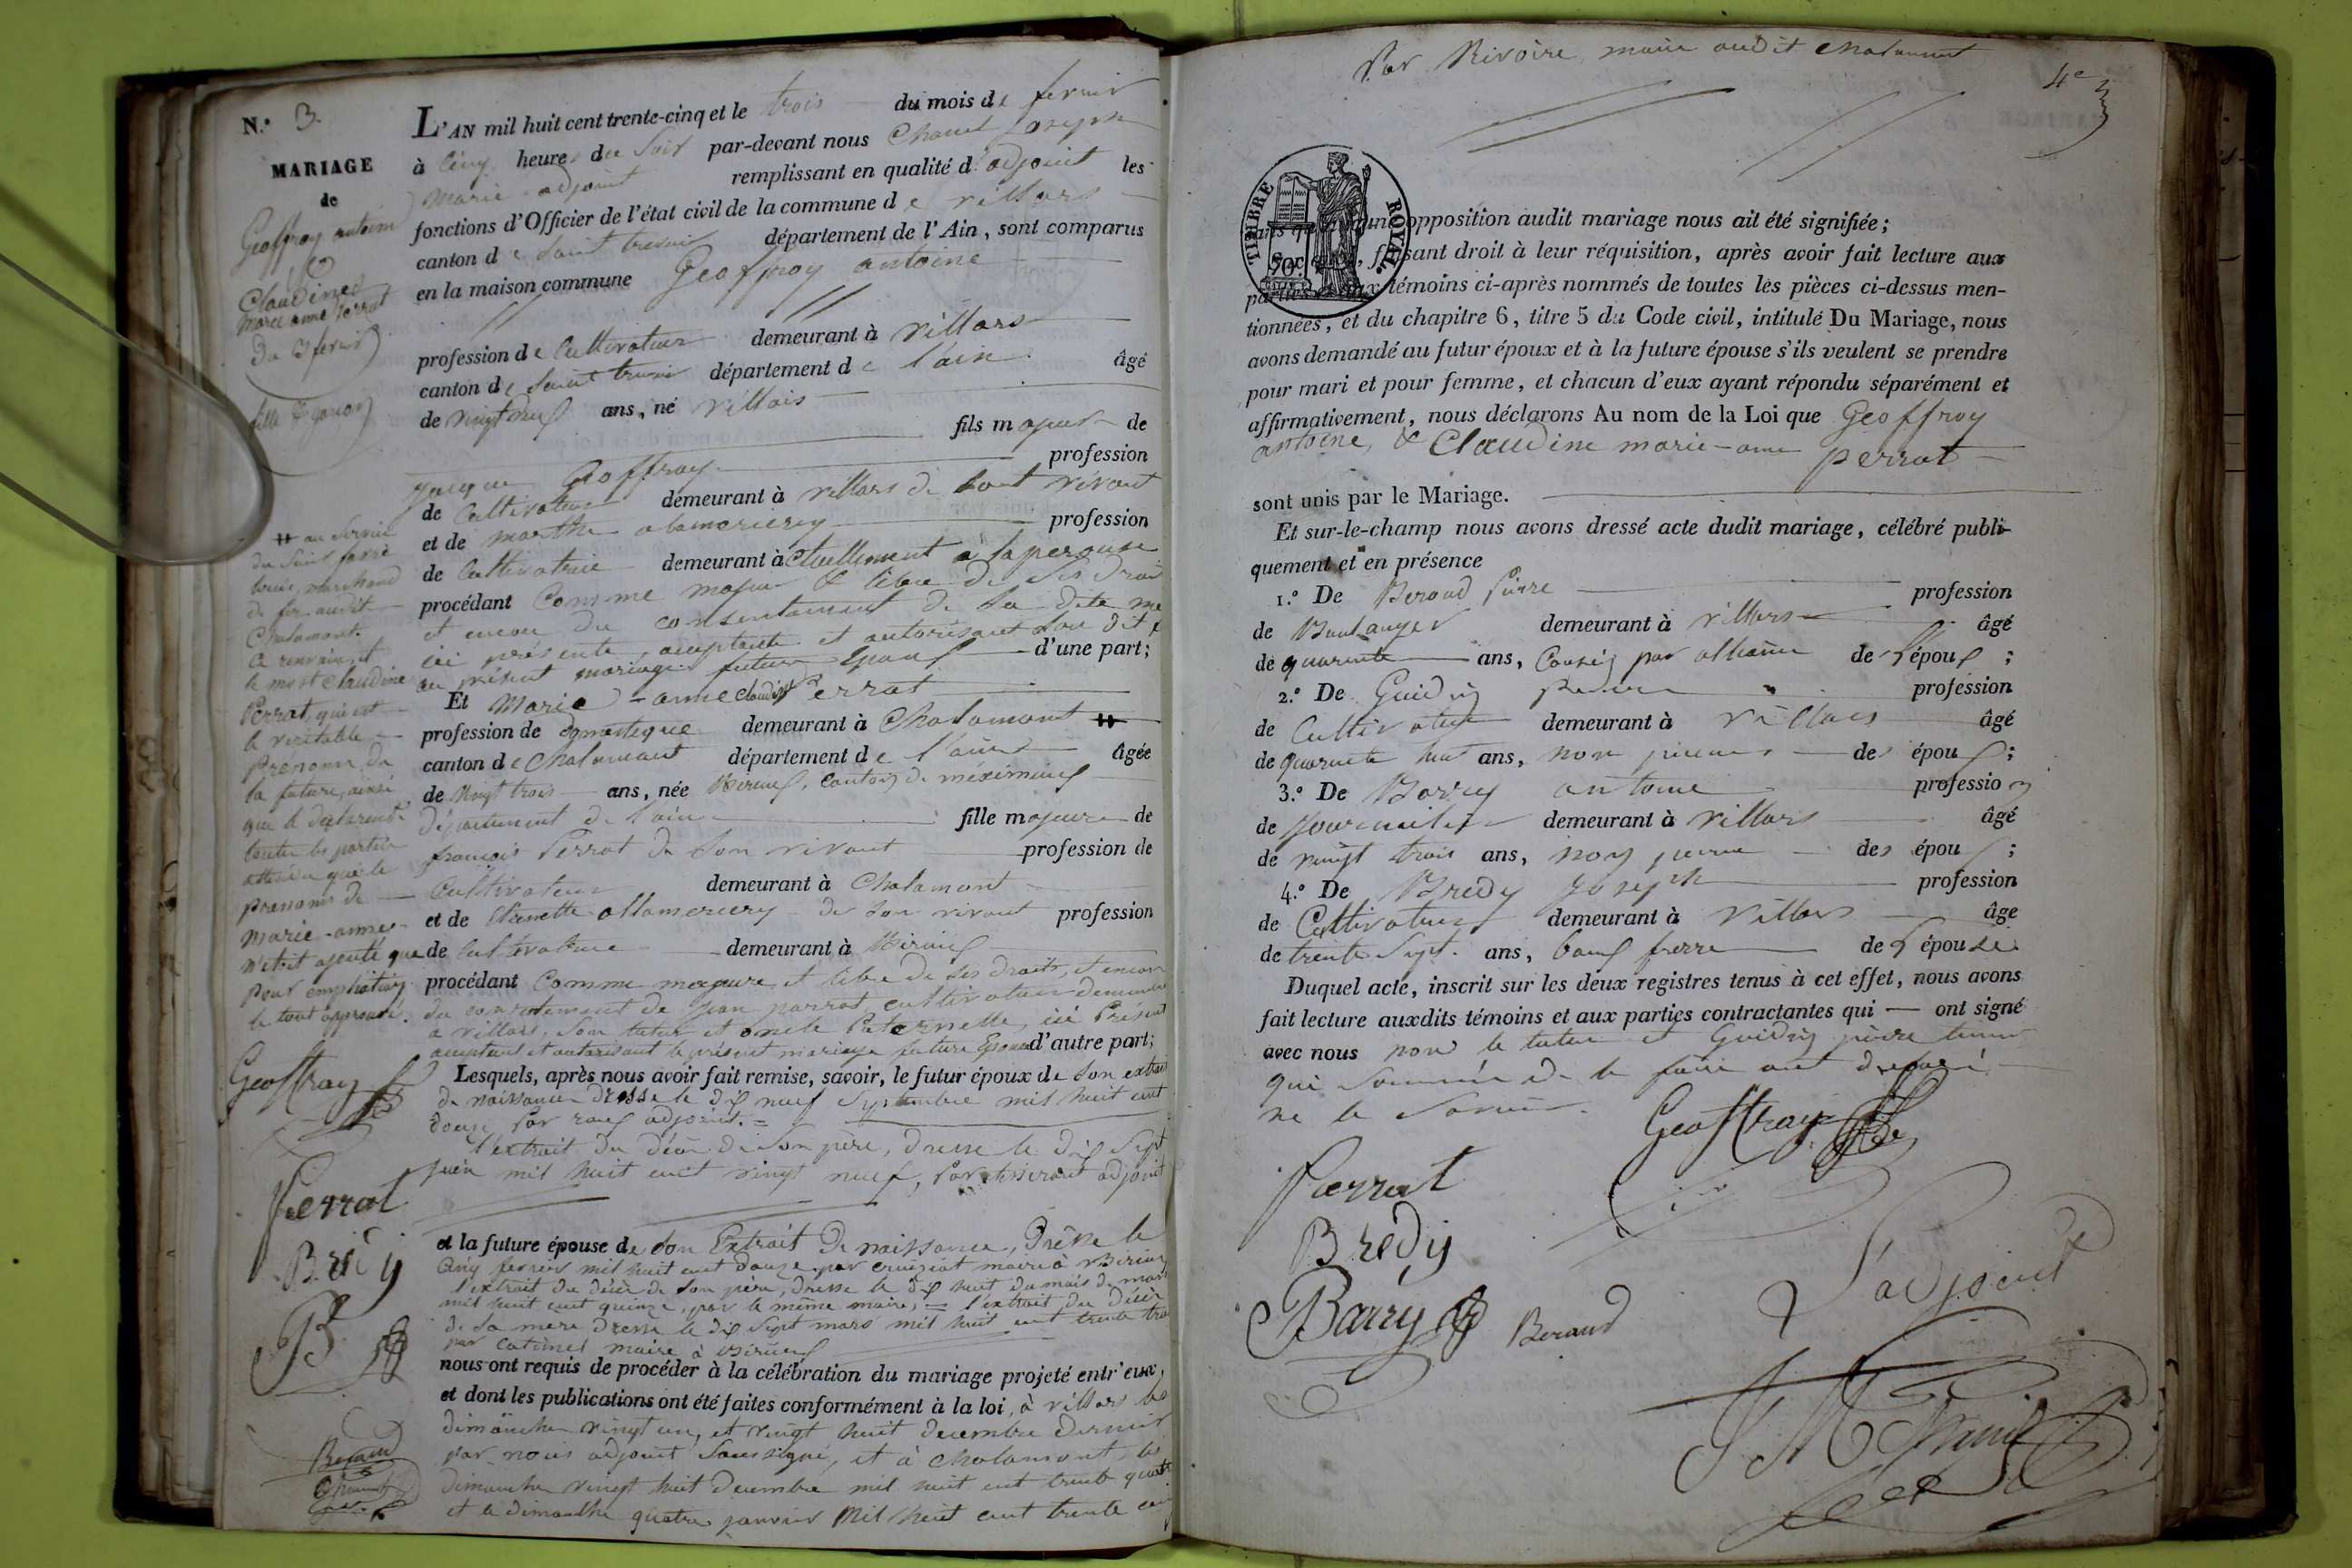 N.° 3.
MARIAGE
de
Geoffroy antoine
&
Claudine
marie anne Perrat
du 3 fevrier
fille & garçon
L'AN mil huit cent trente-cinq et le trois du mois de fevrier
à cinq heures du soir par-devant nous Chanel Joseph
Marie adjoint remplissant en qualité d'adjoint les
fonctions d'Officier de l'état civil de la commune de villars
canton de Saint trivier département de l'Ain, sont comparus
en la maison commune Geoffroy antoine
profession de Cultivateur demeurant à villars
canton de Saint trivier département de l'ain âgé
de vingt deux ans, né villars
fils majeur de
Jacque Geoffray profession
de Cultivateur demeurant à villars de Sont vivant
et de marthe alamercery profession
de Cultivatrice demeurant à actuellement a laperouse
procédant Comme majeur & libre de ses droits
et encore du consentement de Sa dite mere
ici présente, acceptante et autorisant Son dit f
au présent mariage futur Epoux d'une part;
Et Marie-anne claudine Perrat
profession de domestique demeurant à Chalamont
canton de Chalamont département de l'ain âgée
de vingt trois ans, née Birieux, canton de méximieux
département de l'ain fille majeure de
françois Perrat de Son vivant profession de
Cultivateur demeurant à Chalamont
et de Etiennette allamercery de son vivant profession
de Cultivatrice demeurant à Birieux
procédant Comme majeure et libre de ses droits, et encore
du consentement de Jean parrat cultivateur demeurant
a villars, Son tuteur et oncle Paternelle, ici Présent
acceptant et autorisant le présent mariage future Epouse d'autre part;
Lesquels, après nous avoir fait remise, savoir, le futur époux de Son extrait
de naissance dressé le dix neuf Septembre mil huit cent
douze par roux adjoint. =
l'extrait du décès de Son père, dressé le dix Sept
juin mil huit cent vingt neuf, par adjoint
et la future épouse de Son Extrait de naissance, dressé le
cinq fevrier mil huit cent douze par cruiziat maire à Birieux
l'extrait du décès de Son père, dressé le dix huit du mois de mars
mil huit cent quinze, par le même maire, = l'extrait du décès
de Sa mere dressé le dix Sept mars mil huit cent trente trois
par maire à Birieux
nous ont requis de procéder à la célébration du mariage projeté entr'eux,
et dont les publications ont été faites conformément à la loi, à villars les
dimanches vingt un, et vingt huit decembre dernier
par nous adjoint Soussigné, et à chalamont les
dimanche vingt huit decembre mil huit cent trente quatre
et le dimanche quatre janvier Mil huit cent trente cinq
au Service
du Sieur
louis, marchand
de fer audit
Chalamont.
le mot claudine
Perrat, qui est
le veritable
prenom de
la future, ainsi
que le declarent
toutes les parties
attendu que le
prenom de
marie-anne
n'etoit ajouté que
pour
le tout approuvé.
Geoffray
Perrat
Bredy
B
Beraud
Chanel
4e
Par Rivoire, maire audit chalamont
TIMBRE ROYAL
70c
sans qu'aucune opposition audit mariage nous ait été signifiée;
Sur quoi, faisant droit à leur réquisition, après avoir fait lecture aux
parties et aux témoins ci-après nommés de toutes les pièces ci-dessus men-
tionnées, et du chapitre 6, titre 5 du Code civil, intitulé Du Mariage, nous
avons demandé au futur époux et à la future épouse s'ils veulent se prendre
pour mari et pour femme, et chacun d'eux ayant répondu séparément et
affirmativement, nous déclarons Au nom de la Loi que Geoffroy
antoine, & Claudine marie-anne perrat
sont unis par le Mariage.
Et sur-le-champ nous avons dressé acte dudit mariage, célébré publi-
quement et en présence
1.° De Beraud Pierre profession
de Boulanger demeurant à villars âgé
de quarante ans, Cousin par alliance de l'époux;
2.° De Guidin pierre profession
de Cultivateur demeurant à villars âgé
de quarante huit ans, non parent des époux;
3.° De Barry antoine profession
de Journalier demeurant à villars âgé
de vingt trois ans, non parent des époux;
4.° De Bredy Joseph profession
de Cultivateur demeurant à villars âgé
de trente Sept. ans, beau frerre de l'épouse
Duquel acte, inscrit sur les deux registres tenus à cet effet, nous avons
fait lecture auxdits témoins et aux parties contractantes qui ont signé
avec nous non le tuteur et Guidin pierre temoin
qui Sommés de le faire ont declaré
ne le Savoir.
Geoffray
Parrat
Bredy
Barry
Beraud
L'adjoint
J M Chanel